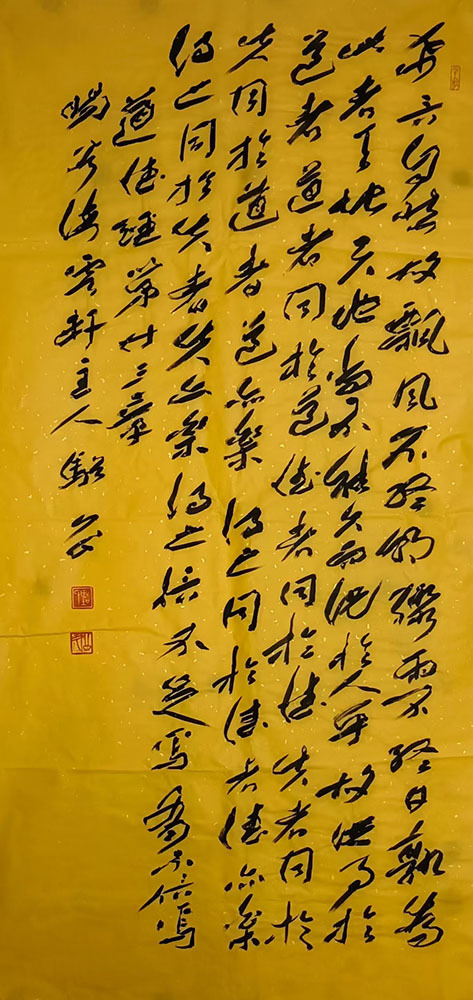 希言自然故飄風不終朝驟雨不終日孰為
此者天地天地尚不能久而況於人乎故從事於
道者道者同於道德者同於德失者同於
失同於道者道亦樂得之同於德者德亦樂
得之同於失者失亦樂得之信不足焉有不信焉
道德經第廿三章
雲軒主人駱